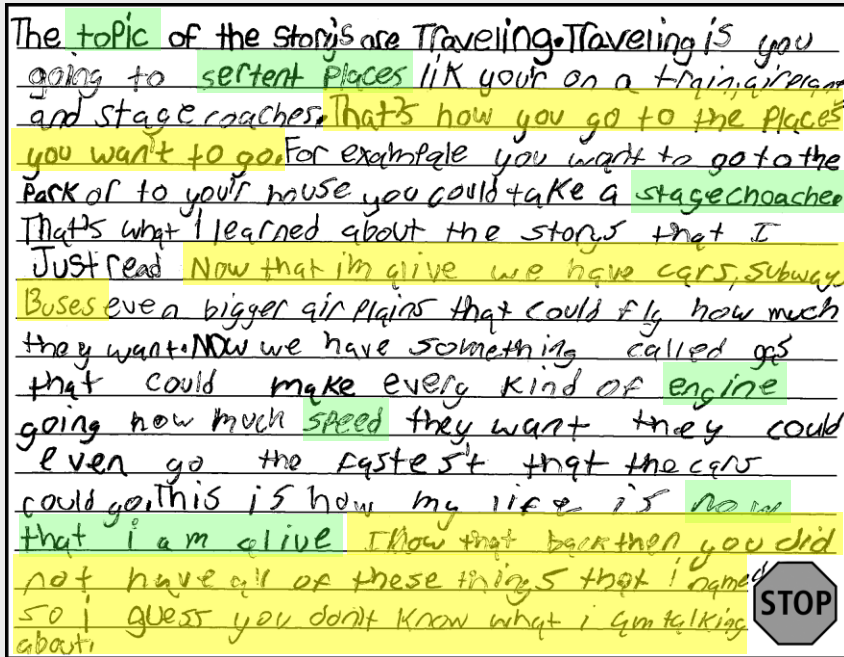 The topic of the storys are Traveling. Traveling is you
going to sertent places lik your on a train, airplant
and stage coaches. That's how you go to the places
you wan't to go. For exampale you want to go to the
park or to you'r house you could take a stagechoachee
That's what I learned about the storys that I
Just read Now that i'm alive we have cars, subway
Buses even bigger air plains that could fly how much
they want. Now we have something called gas
that could make every kind of engine
going how much speed they want they could
even go the fastes't that the cars
could go. This is how my life is now
that i am alive I how that back then you did
not have all of these things that i named
so i guess you don't know what i am talking
about.
STOP